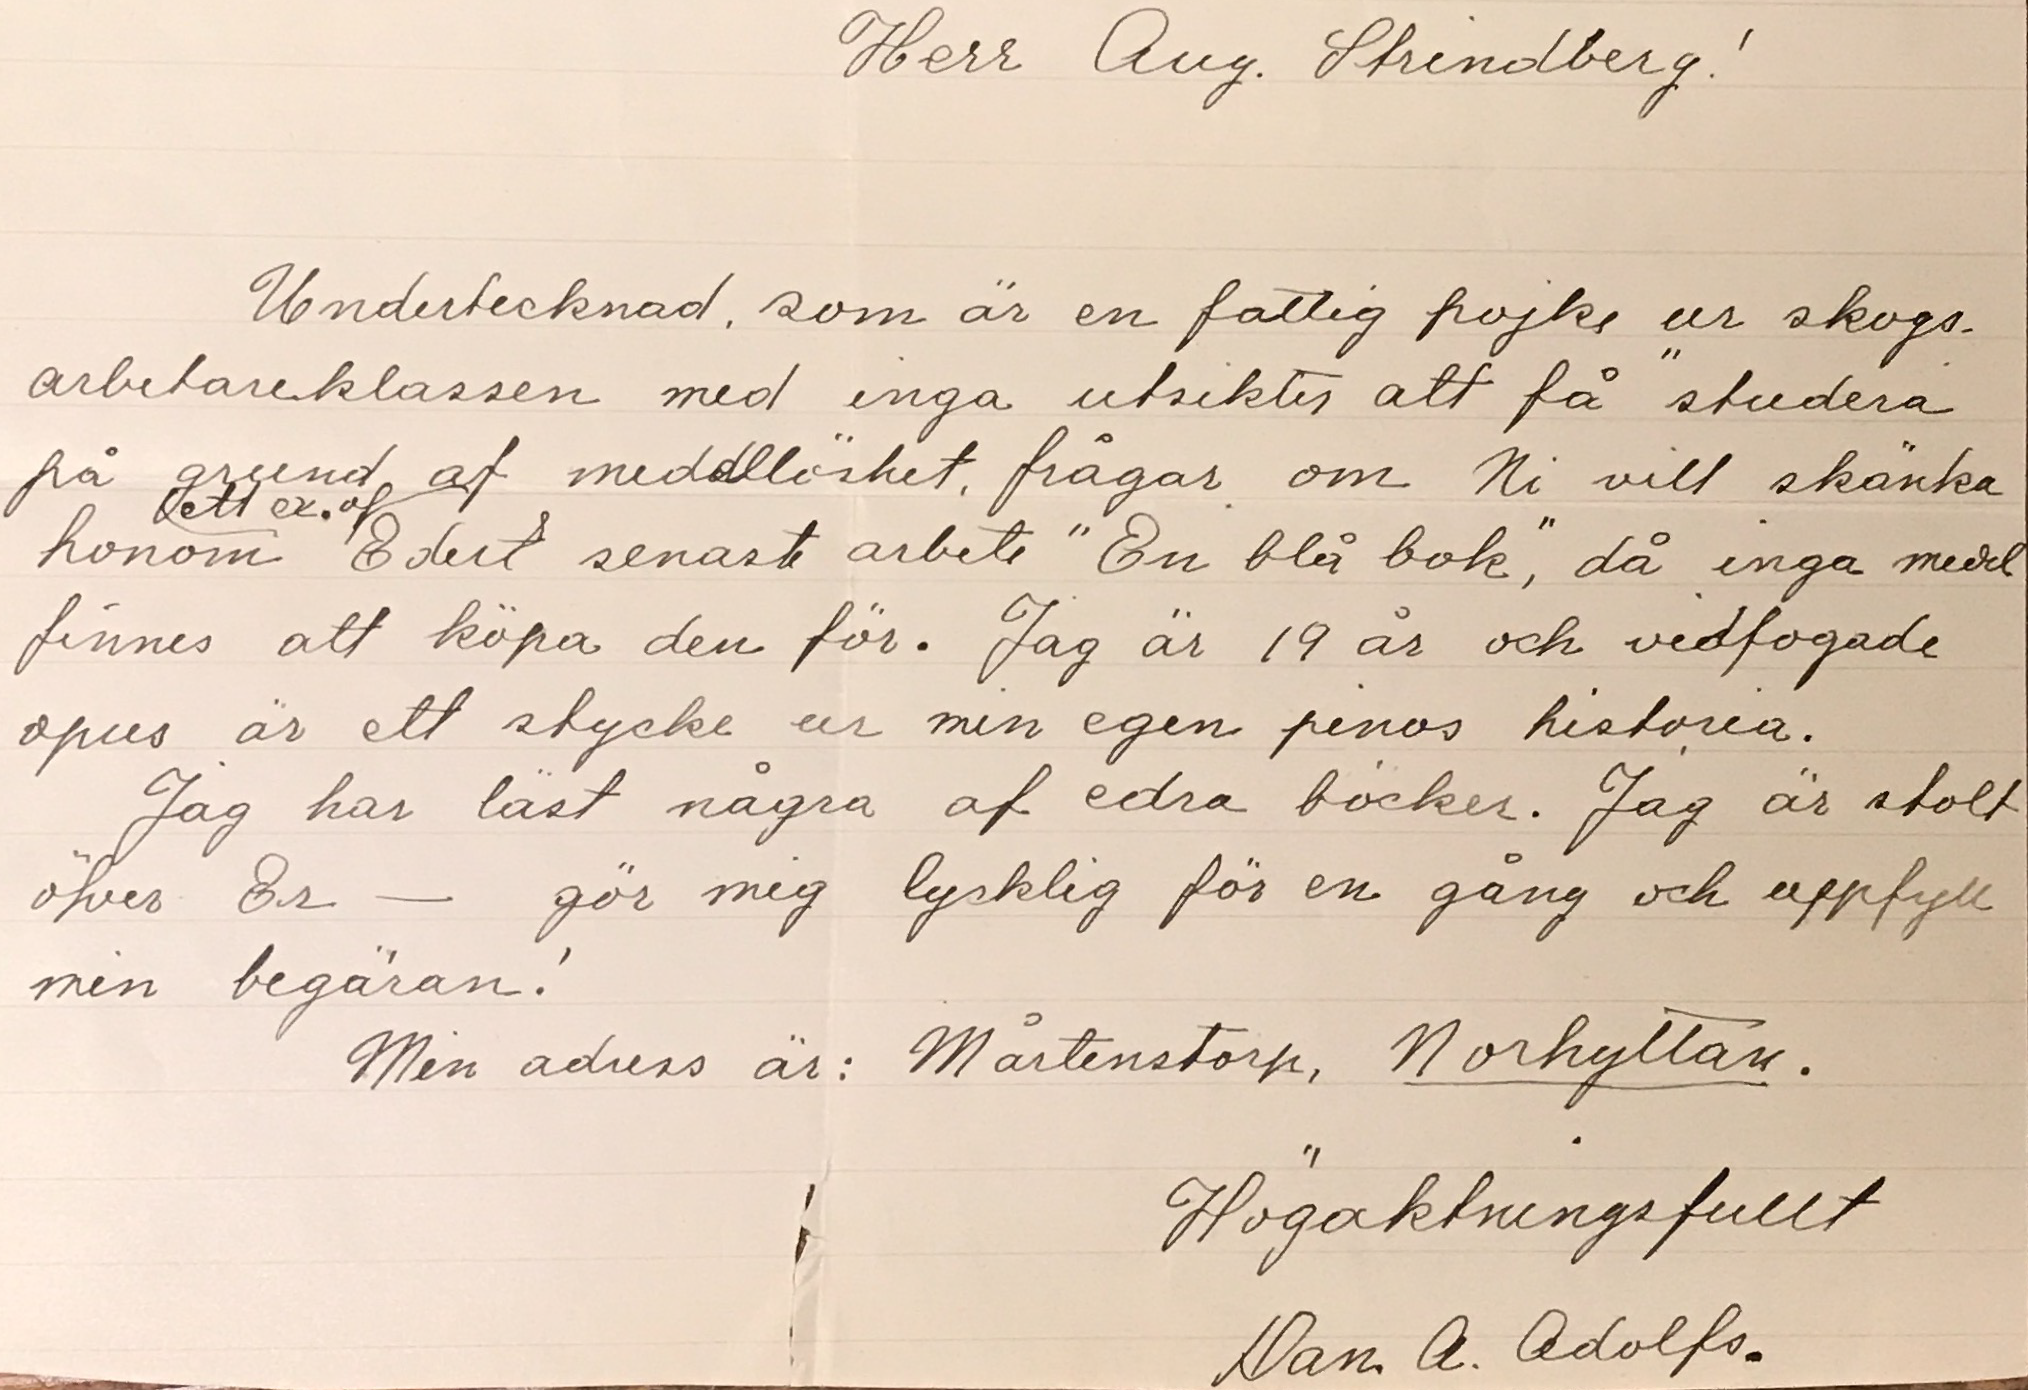 Herr Aug. Strindberg!
Undertecknad, som är en fattig pojke ur skogs-
arbetareklassen med inga utsikter att få "studera"
på grund af medellöshet, frågar om Ni vill skänka
ett ex. af
honom Edert senaste arbete "En blå bok", då inga medel
finnes att köpa den för. Jag är 19 år och vidfogade
opus är ett stycke ur min egen pinos historia.
Jag har läst några af edra böcker. Jag är stolt
öfver Er — gör mig lycklig för en gång och uppfyll
min begäran!
Min adress är: Mårtenstorp, Norhyttan.
Högaktningsfullt
Dan. A. Adolfs.